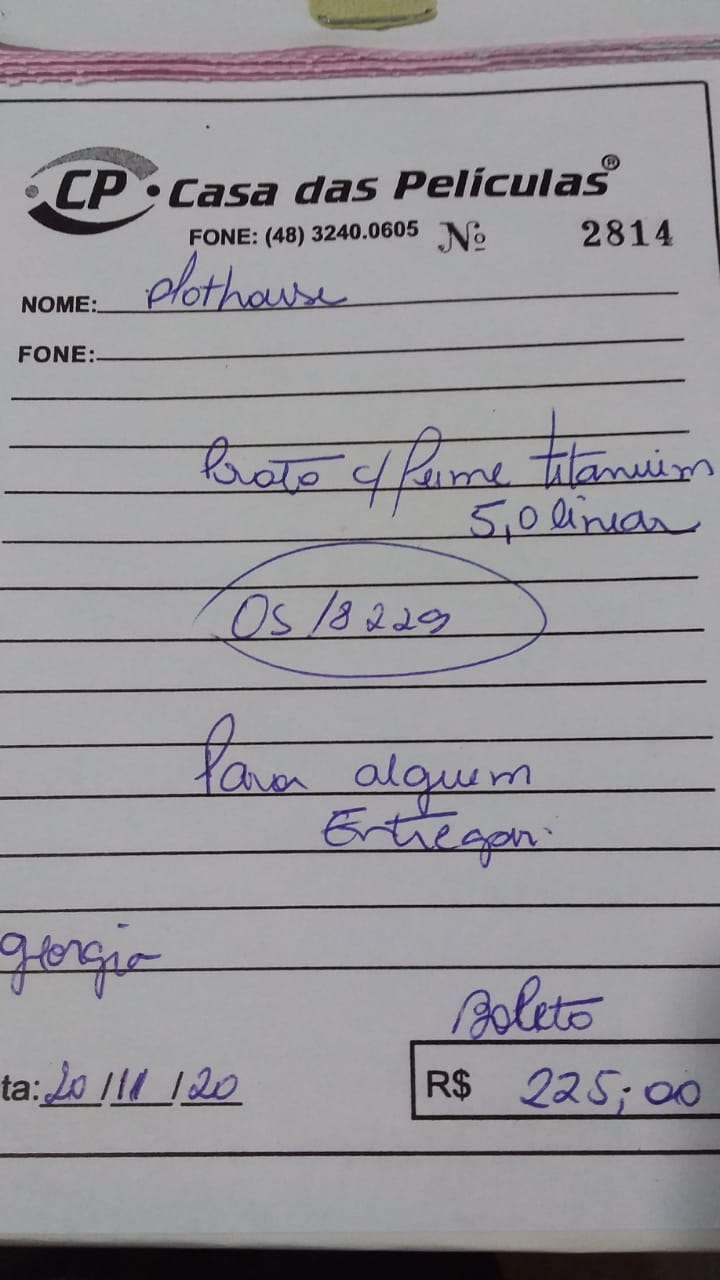 CP • Casa das Películas®
FONE: (48) 3240.0605 Nº 2814
NOME: Plothouse
FONE:
Prata c/ fume titanium
5,0 linear
OS 18229
Para alguem
Entregar.
georgia
Boleto
ta: 20/11/20 R$ 225,00